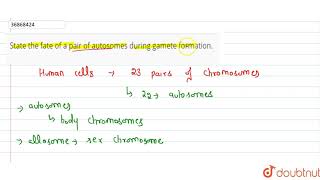 36868424
State the fate of a pair of autosomes during gamete formation.
Human cells → 23 pairs of chromosomes
↳ 22→ autosomes
→ autosomes
↳ body chromosomes
→ allosome → sex chromosome
doubtnut